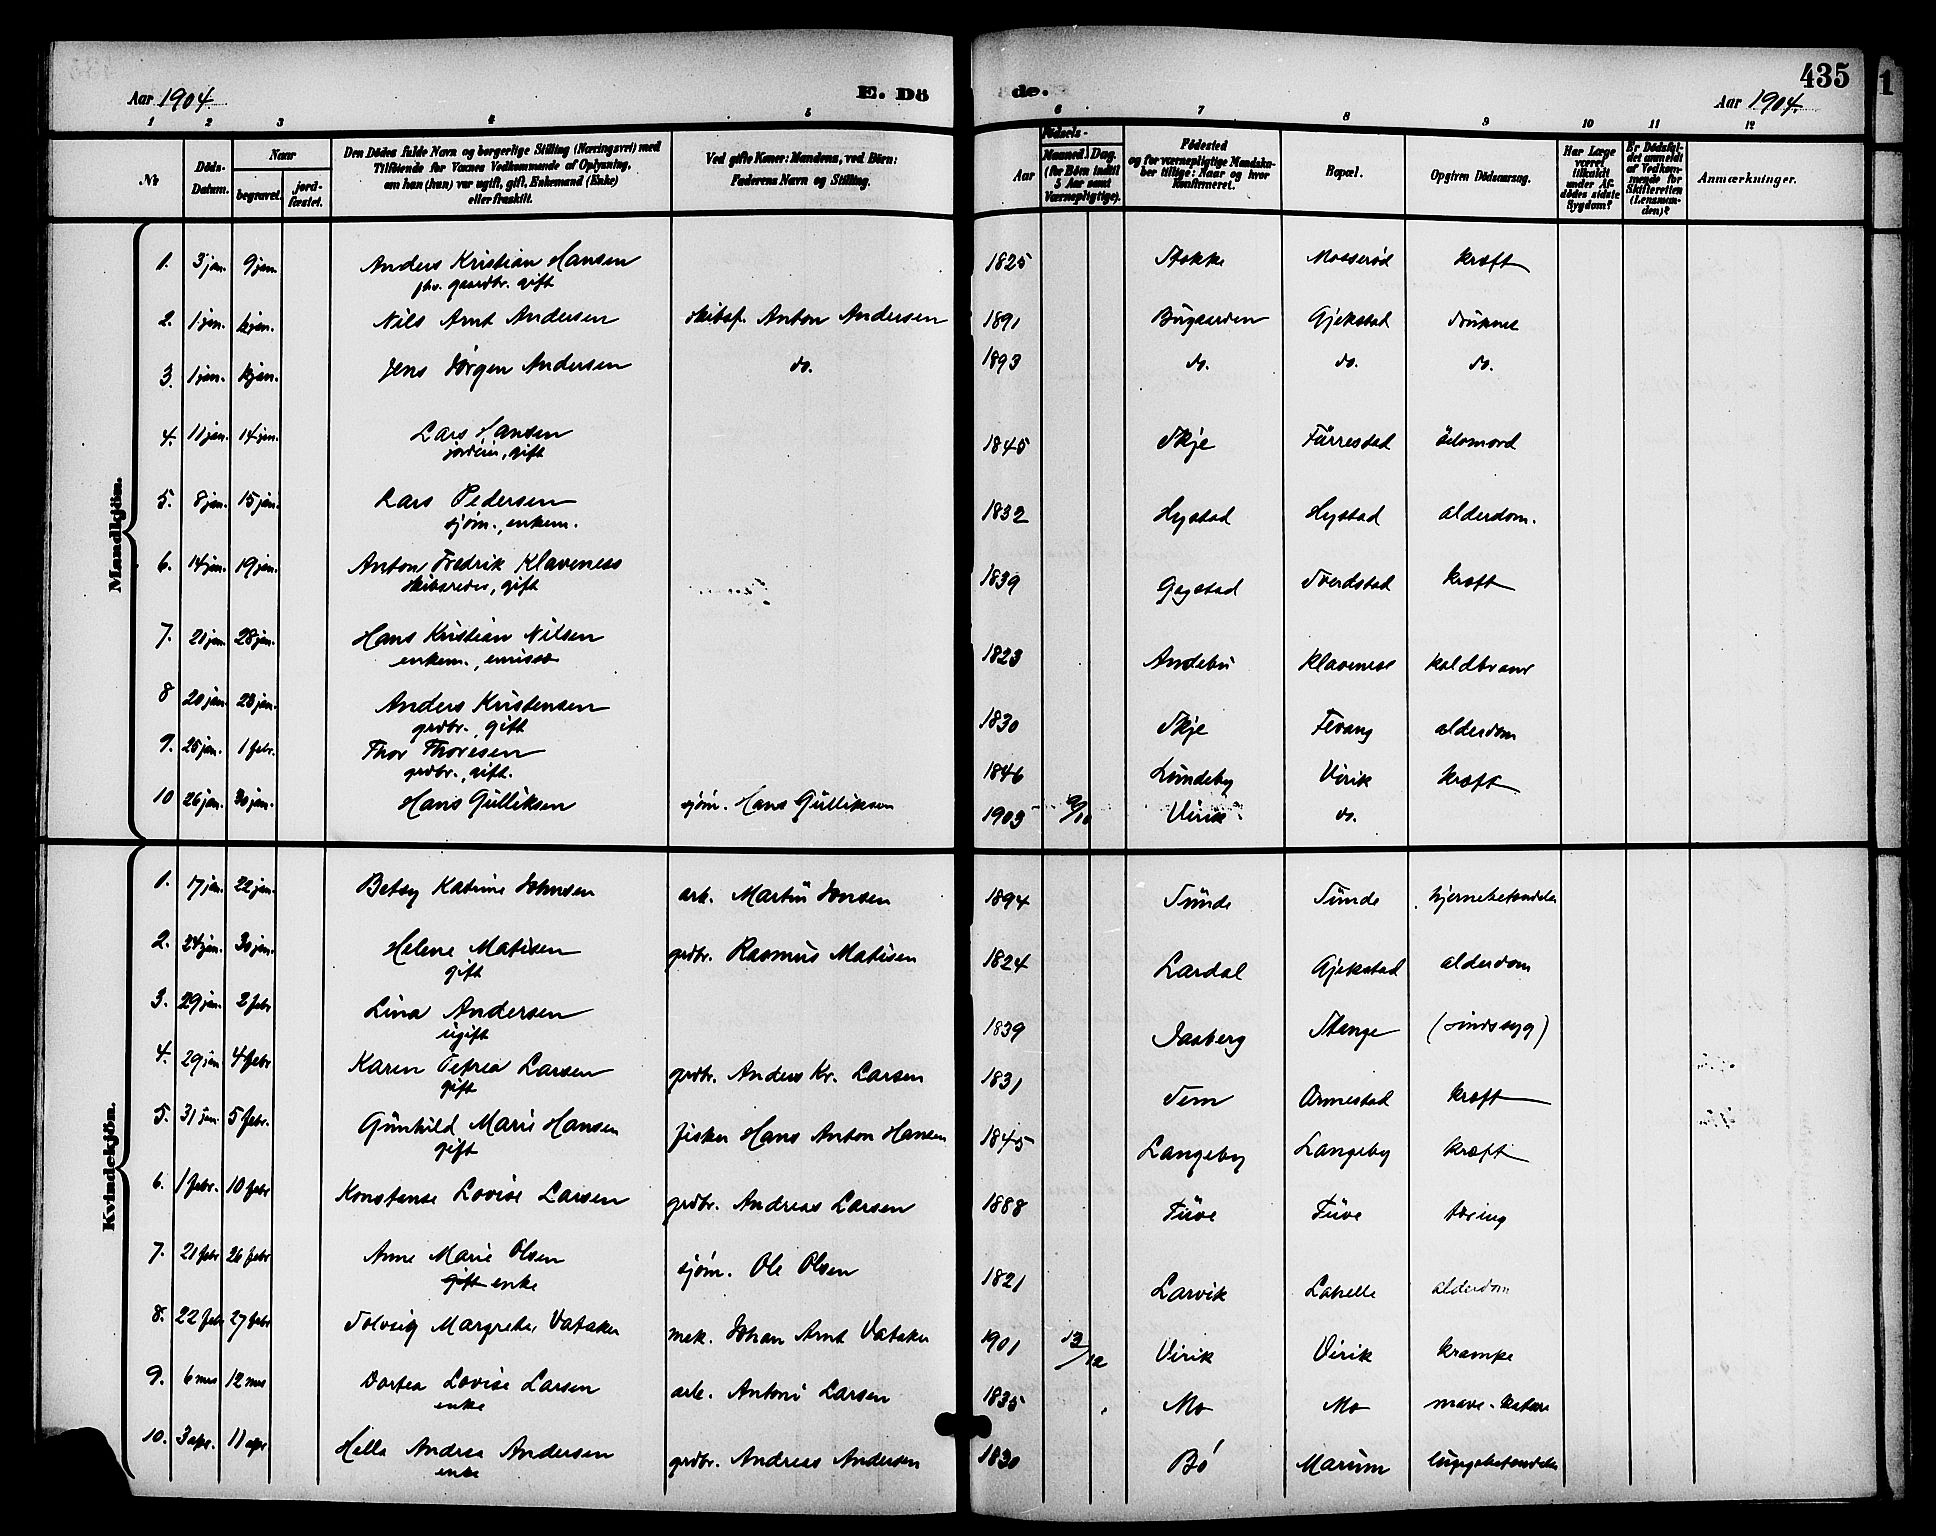 435
1
Aar 1904
E. Dö
de.
Aar 1904.
1 2 3 4 5 6 7 8 9 10 11 12
No
Döds-Datum.
Naar
begravet.
jord-fæstet.
Den Dödes fulde Navn og borgerlige Stilling (Næringsvei) med
Tilföiende for Voxnes Vedkommende af Oplysning,
om han (hun) var ugift, gift, Enkemand (Enke)
eller fraskilt.
Ved gifte Koner: Mandens, ved Börn:
Faderens Navn og Stilling.
Födsels-
Aar
Maaned. Dag.
(for Börn indtil
5 Aar samt
Værnepligtige).
Födested
og for værnepligtige Mandskaber tillige: Naar og hvor
Konfirmeret.
Bopæl.
Opgiven Dödsaarsag.
Har Læge
været
tilkaldt
under Afdödes sidste
Sygdom?
Er Dödsfaldet anmeldt
af Vedkommende for
Skifteretten
(Lensmanden)?
Anmærkninger.
Mandkjön.
1. 3 jan. 9 jan. Anders Kristian Hansen 1825 Stokke Mosserød kræft
fhv. gaardbr. gift
2. 1 jan. Nils Arnt Andersen skibsf. Anton Andersen 1891 Bugaarden Gjekstad druknet
3. 1 jan. Jens Jørgen Andersen do. 1893 do. do. do.
4. 11 jan. 14 jan. Lars Hansen 1845 Skje Furrestad
gift
5. 8 jan. 15 jan. Lars Pedersen 1832 Hystad Hystad alderdom.
sjøm., enkem.
6. 14 jan. 19 jan. Anton Fredrik Klaveness 1839 Gogstad Tverdstad kræft
skibsreder, gift
7. 21 jan. 28 jan. Hans Kristian Nilsen 1823 Andebu Klavenese koldbrand
enkem., emissær
8 20 jan. 28 jan. Anders Kristensen 1830 Skje Fevang alderdom
grdbr., gift
9. 25 jan. 1 febr. Thor Thoresen 1846 Lundeby Virik kræft
grdbr., gift.
10 26 jan. 30 jan. Hans Gulliksen sjøm. Hans Gulliksen 1903 9/10 Virik do.
Kvindekjön.
1. 17 jan. 22 jan. Betsy Katrine Johnsen arb. Martin Jonsen 1894 Sunde Sunde hjernebetændelse
2. 24 jan. 30 jan. Helene Matisen grdbr. Rasmus Matisen 1824 Lardal Gjekstad alderdom
gift
3. 29 jan. 2 febr Lina Andersen 1839 Jaaberg Stange (sindssyg)
ugift
4. 29 jan 4 febr Karen Petrea Larsen grdbr. Anders Kr. Larsen 1831 Sem Ormestad kræft
gift
5. 31 jan. 5 febr. Gunhild Marie Hansen fisker Hans Anton Hansen 1845 Langeby Langeby kræft
gift
6. 1 febr. 10 febr Konstanse Lovise Larsen grdbr. Andreas Larsen 1888 Tuve Tuve tæring
7. 21 febr 26 febr Anne Marie Olsen sjøm. Ole Olsen 1821 Larvik Lahelle alderdom
gift enke
8. 22 febr 27 febr Solveig Margrete Vataker mek. Johan Arnt Vataker 1901 13/12 Virik Virik krampe
9. 6 mrs 12 mrs Dortea Lovise Larsen arb. Antoni Larsen 1835 Mo Mo mave-katarr
enke
10. 3 apr. 11 apr Hella Andrea Andersen grdbr. Andreas Andersen 1830 Bø Marum lungebetændelse
enke